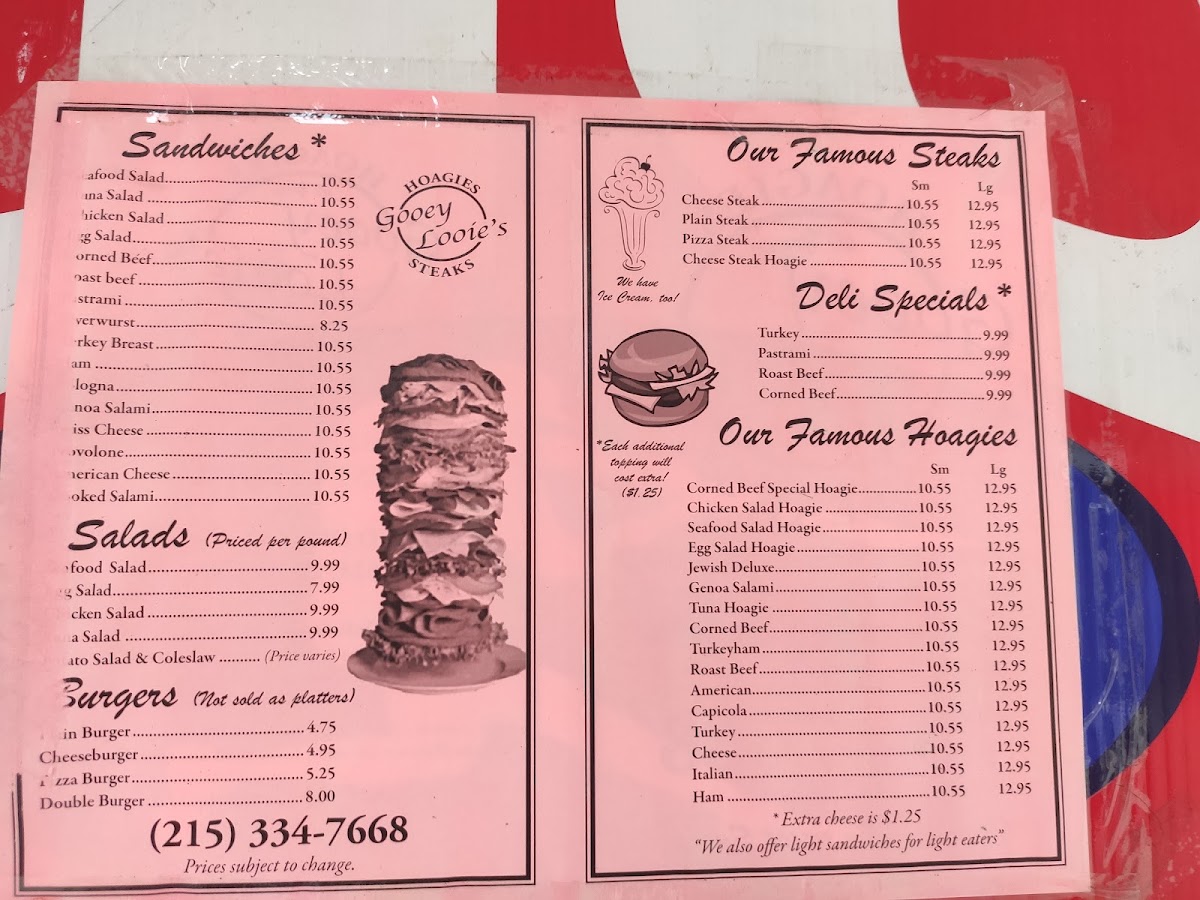 Sandwiches *
afood Salad 10.55
una Salad 10.55
hicken Salad 10.55
gg Salad 10.55
orned Beef 10.55
oast beef 10.55
strami 10.55
verwurst 8.25
rkey Breast 10.55
am 10.55
logna 10.55
noa Salami 10.55
iss Cheese 10.55
ovolone 10.55
nerican Cheese 10.55
oked Salami 10.55
HOAGIES
Gooey
Looie's
STEAKS
Salads (Priced per pound)
food Salad 9.99
gg Salad 7.99
cken Salad 9.99
na Salad 9.99
ato Salad & Coleslaw (Price varies)
Burgers (Not sold as platters)
in Burger 4.75
Cheeseburger 4.95
Pizza Burger 5.25
Double Burger 8.00
(215) 334-7668
Prices subject to change.
Our Famous Steaks
Sm Lg
Cheese Steak 10.55 12.95
Plain Steak 10.55 12.95
Pizza Steak 10.55 12.95
Cheese Steak Hoagie 10.55 12.95
We have
Ice Cream, too!
Deli Specials *
Turkey 9.99
Pastrami 9.99
Roast Beef 9.99
Corned Beef 9.99
*Each additional
topping will
cost extra!
($1.25)
Our Famous Hoagies
Sm Lg
Corned Beef Special Hoagie 10.55 12.95
Chicken Salad Hoagie 10.55 12.95
Seafood Salad Hoagie 10.55 12.95
Egg Salad Hoagie 10.55 12.95
Jewish Deluxe 10.55 12.95
Genoa Salami 10.55 12.95
Tuna Hoagie 10.55 12.95
Corned Beef 10.55 12.95
Turkeyham 10.55 12.95
Roast Beef 10.55 12.95
American 10.55 12.95
Capicola 10.55 12.95
Turkey 10.55 12.95
Cheese 10.55 12.95
Italian 10.55 12.95
Ham 10.55 12.95
* Extra cheese is $1.25
"We also offer light sandwiches for light eaters"